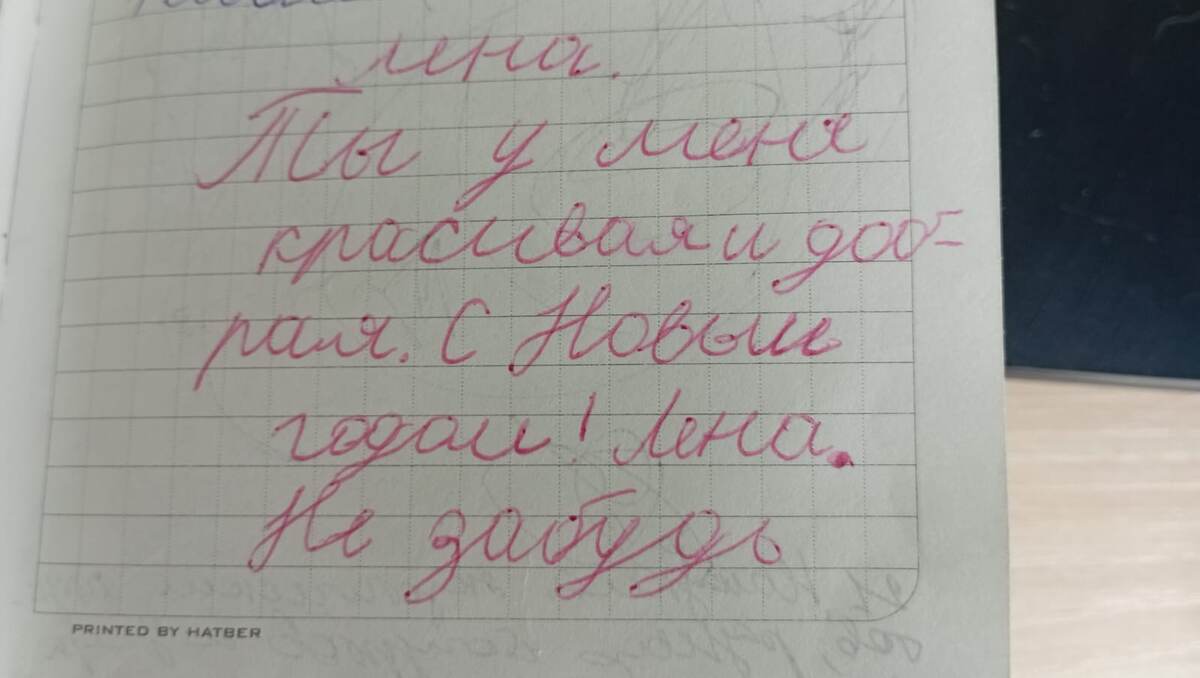 лена.
Ты у меня
красивая и доб-
рая. С Новым
годом! Лена.
Не забудь
PRINTED BY HATBER